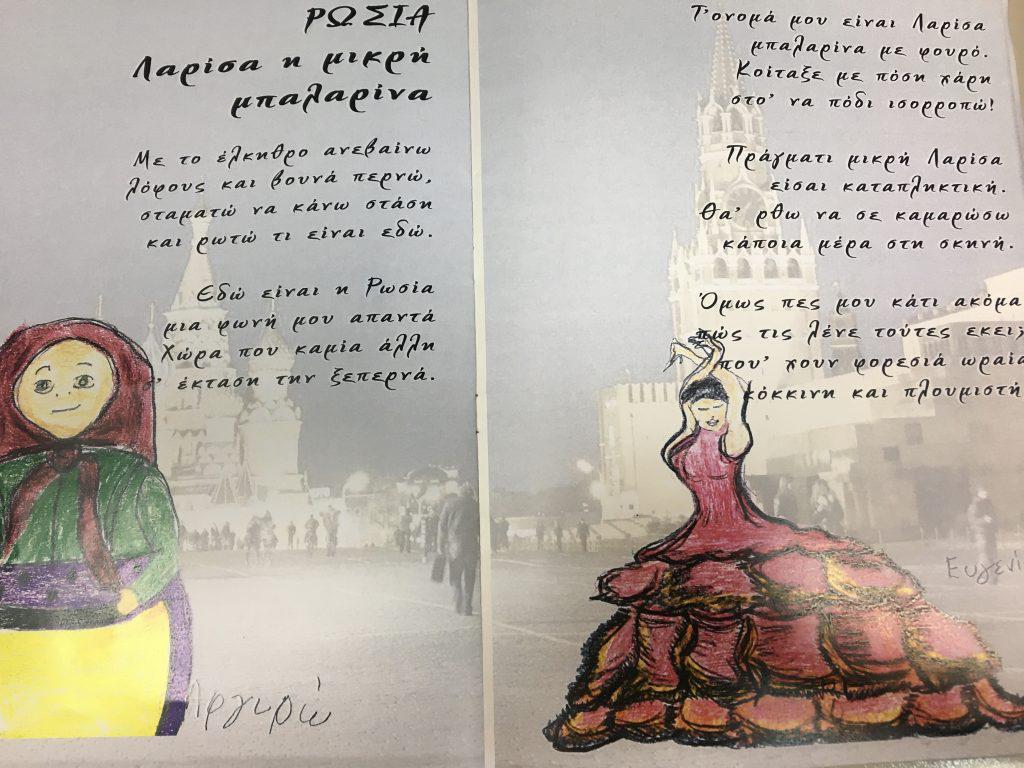 ΡΩΣΙΑ
Λαρίσα η μικρή
μπαλαρίνα
Με το έλκηθρο ανεβαίνω
λόφους και βουνά περνώ,
σταματώ να κάνω στάση
και ρωτώ τι είναι εδώ.
Εδώ είναι η Ρωσία
μια φωνή μου απαντά
Χώρα που καμία άλλη
σ' έκταση την ξεπερνά.
Αργυρώ
Τ'ονομά μου είναι Λαρίσα
μπαλαρίνα με φουρό.
Κοίταξε με πόση χάρη
στο' να πόδι ισορροπώ!
Πράγματι μικρή Λαρίσα
είσαι καταπληκτική.
Θα' ρθω να σε καμαρώσω
κάποια μέρα στη σκηνή.
Όμως πες μου κάτι ακόμα
πώς τις λένε τούτες εκεί;
που' χουν φορεσιά ωραία
κόκκινη και πλουμιστή
Ευγενί